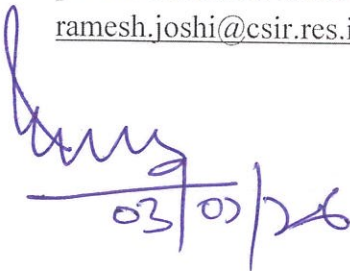 ramesh.joshi@csir.res.i
03/07/26